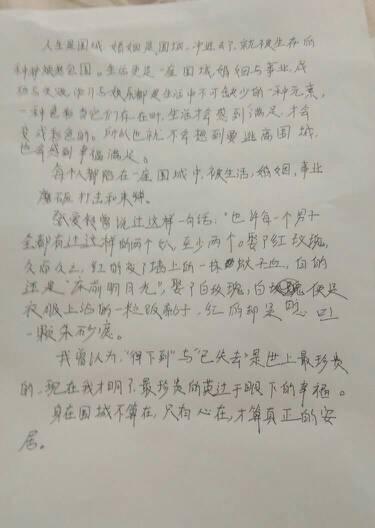 人生是围城,婚姻是围城,冲进去了,就被生存的
种种烦愁包围。生活更是一座围城,婚姻与事业,成
功与失败,
一种色彩
变成彩色的。所以也就不会想到要逃离围城,
也会感到幸福满足。
每个人都陷在一座围城中,被生活,婚姻,事业
磨砺打击和束缚。
张爱玲曾说过这样一句话:“也许每一个男子
全都有过这样的两个女人,至少两个。娶了红玫瑰,
久而久之,红的变了墙上的一抹蚊子血,白的
还是“床前明月光”,娶了白玫瑰,白玫瑰便是
衣服上沾的一粒饭黏子,红的却是心口
一颗朱砂痣。
我曾认为,“得不到”与“已失去”是世上最珍贵
的,现在我才明了,最珍贵的莫过于眼下的幸福。
身在围城不算在,只有心在,才算真正的安
居。